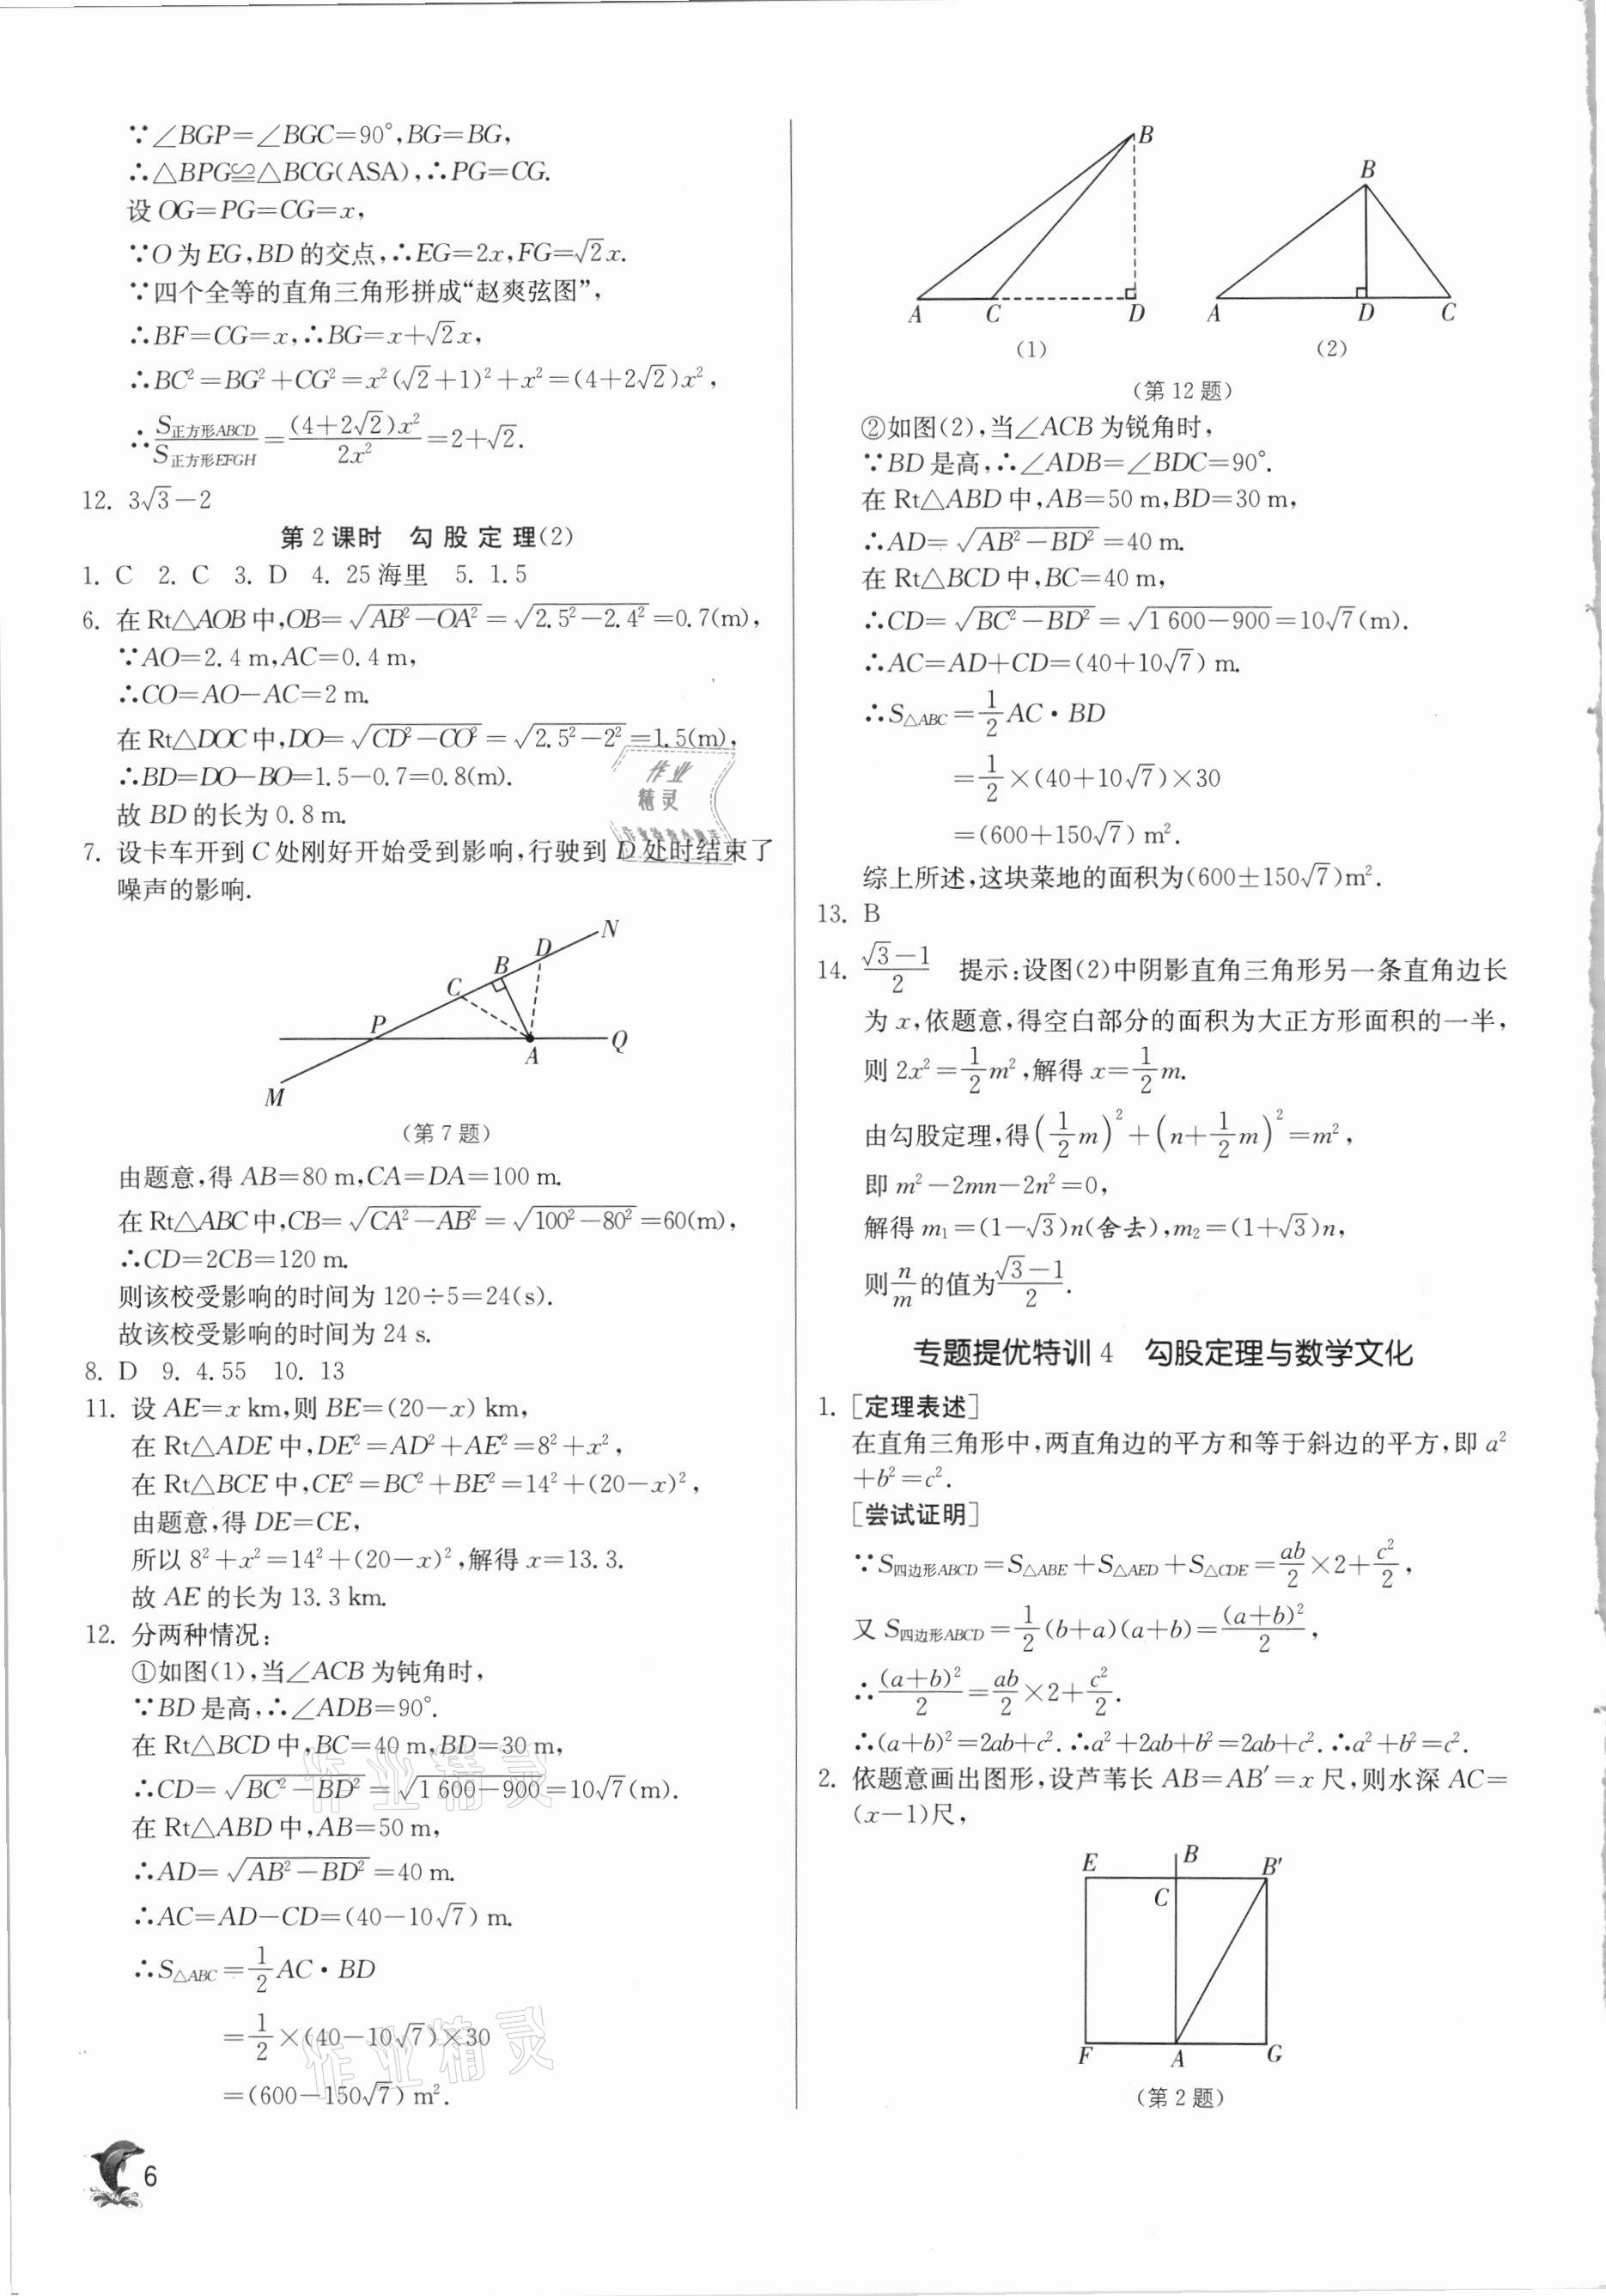 ∵∠BGP=∠BGC=90°,BG=BG,
∴△BPG≌△BCG(ASA),∴PG=CG.
设OG=PG=CG=x,
∵O为EG,BD的交点,∴EG=2x,FG=√2x.
∵四个全等的直角三角形拼成“赵爽弦图”,
∴BF=CG=x,∴BG=x+√2x,
∴BC²=BG²+CG²=x²(√2+1)²+x²=(4+2√2)x²,
∴S正方形ABCD/S正方形EFGH=(4+2√2)x²/2x²=2+√2.
12. 3√3-2
第2课时 勾股定理(2)
1. C 2. C 3. D 4. 25海里 5. 1.5
6. 在Rt△AOB中,OB=√(AB²-OA²)=√(2.5²-2.4²)=0.7(m),
∵AO=2.4 m,AC=0.4 m,
∴CO=AO-AC=2 m.
在Rt△DOC中,DO=√(CD²-CO²)=√(2.5²-2²)=1.5(m),
∴BD=DO-BO=1.5-0.7=0.8(m).
故BD的长为0.8 m.
7. 设卡车开到C处刚好开始受到影响,行驶到D处时结束了
噪声的影响.
N
D
B
C
P
A
Q
M
(第7题)
由题意,得AB=80 m,CA=DA=100 m.
在Rt△ABC中,CB=√(CA²-AB²)=√(100²-80²)=60(m),
∴CD=2CB=120 m.
则该校受影响的时间为120÷5=24(s).
故该校受影响的时间为24 s.
8. D 9. 4.55 10. 13
11. 设AE=x km,则BE=(20-x) km,
在Rt△ADE中,DE²=AD²+AE²=8²+x²,
在Rt△BCE中,CE²=BC²+BE²=14²+(20-x)²,
由题意,得DE=CE,
所以8²+x²=14²+(20-x)²,解得x=13.3.
故AE的长为13.3 km.
12. 分两种情况:
①如图(1),当∠ACB为钝角时,
∵BD是高,∴∠ADB=90°.
在Rt△BCD中,BC=40 m,BD=30 m,
∴CD=√(BC²-BD²)=√(1 600-900)=10√7(m).
在Rt△ABD中,AB=50 m,
∴AD=√(AB²-BD²)=40 m.
∴AC=AD-CD=(40-10√7) m.
∴S△ABC=1/2 AC·BD
=1/2×(40-10√7)×30
=(600-150√7) m².
6
B
A C D
(1)
B
A D C
(2)
(第12题)
②如图(2),当∠ACB为锐角时,
∵BD是高,∴∠ADB=∠BDC=90°.
在Rt△ABD中,AB=50 m,BD=30 m,
∴AD=√(AB²-BD²)=40 m.
在Rt△BCD中,BC=40 m,
∴CD=√(BC²-BD²)=√(1 600-900)=10√7(m).
∴AC=AD+CD=(40+10√7) m.
∴S△ABC=1/2 AC·BD
=1/2×(40+10√7)×30
=(600+150√7) m².
综上所述,这块菜地的面积为(600±150√7)m².
13. B
14. (√3-1)/2 提示:设图(2)中阴影直角三角形另一条直角边长
为x,依题意,得空白部分的面积为大正方形面积的一半,
则2x²=1/2 m²,解得x=1/2 m.
由勾股定理,得(1/2 m)²+(n+1/2 m)²=m²,
即m²-2mn-2n²=0,
解得m₁=(1-√3)n(舍去),m₂=(1+√3)n,
则n/m的值为(√3-1)/2.
专题提优特训4 勾股定理与数学文化
1. [定理表述]
在直角三角形中,两直角边的平方和等于斜边的平方,即a²
+b²=c².
[尝试证明]
∵S四边形ABCD=S△ABE+S△AED+S△CDE=ab/2×2+c²/2,
又S四边形ABCD=1/2(b+a)(a+b)=(a+b)²/2,
∴(a+b)²/2=ab/2×2+c²/2.
∴(a+b)²=2ab+c².∴a²+2ab+b²=2ab+c².∴a²+b²=c².
2. 依题意画出图形,设芦苇长AB=AB′=x尺,则水深AC=
(x-1)尺,
E B B′
C
F A G
(第2题)
作业
精灵
作业精灵
作业精灵